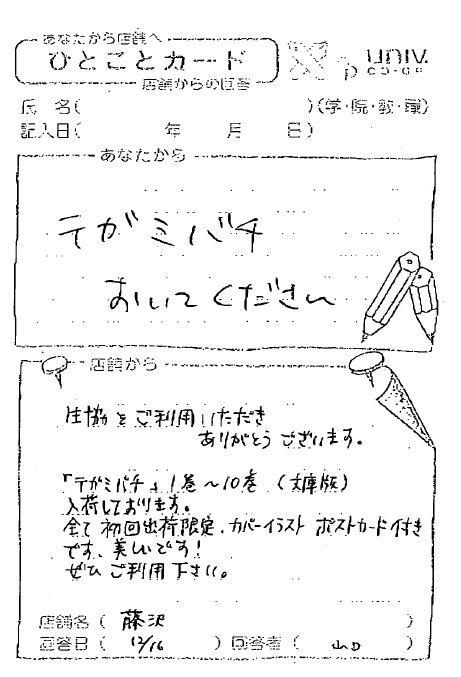 あなたから店舗へ
ひとことカード
店舗からの回答
UNIV.
CO-OP
氏 名( )(学・院・教・職)
記入日( 年 月 日)
あなたから
テガミバチ
おいてください
店舗から
生協をご利用いただき
ありがとうございます。
「テガミバチ」1巻~10巻 (文庫版)
入荷しております。
全て初回出荷限定、カバーイラスト ポストカード付き
です、美しいです!
ぜひご利用下さい。
店舗名( 藤沢 )
回答日( 12/16 )回答者( 山口 )